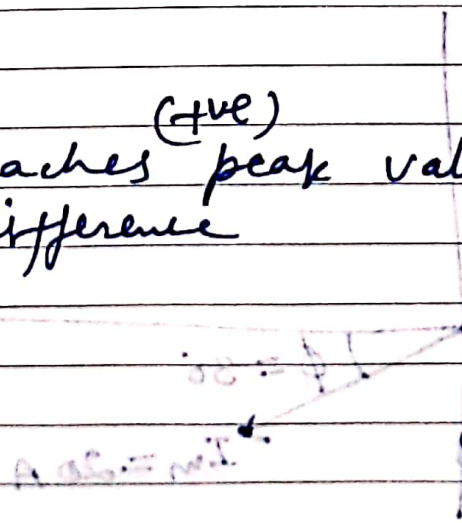 (+ve)
aches peak val
ifference